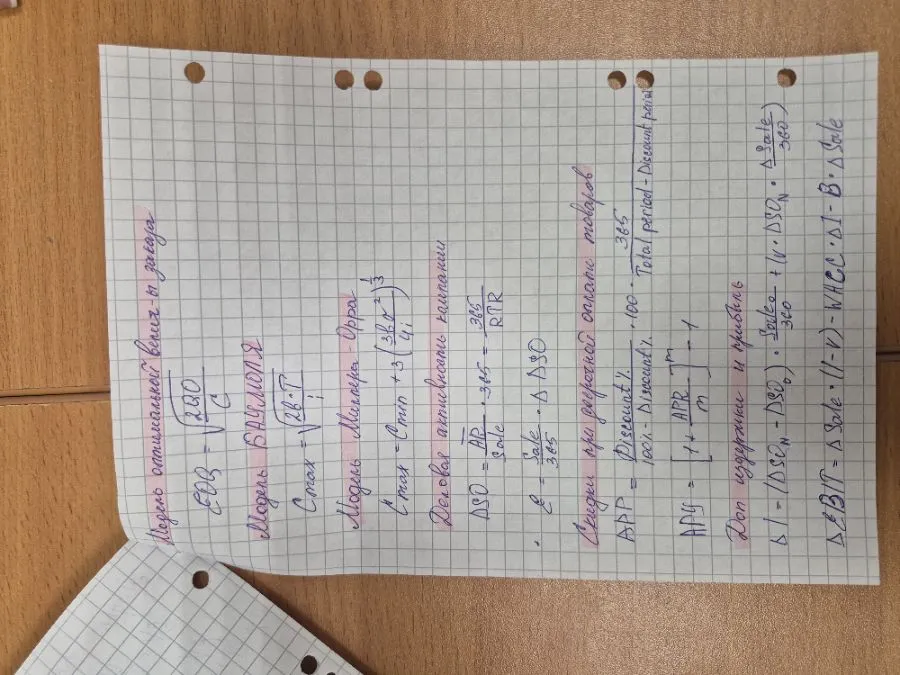 Модель оптимальной велич-ы заказа
EOQ = √(2QO / C)
Модель БАУМОЛЯ
Cmax = √(2b·T / i)
Модель Миллера-Орра
Cmax = Cmin + 3 (3bσ² / 4i)^(1/3)
Деловая активность кампании
DSO = AR / Sale · 365 = 365 / RTR
E = Sale / 365 · Δ DSO
Скидки при досрочной оплати товаров
APP = Discount% / 100% - Discount% · 100 · 365 / Total period - Discount period
APY = [1 + APR / m]^m - 1
Доп издержки и прибыль
Δ I = (DSO_N - DSO_0) · Sale_0 / 360 + (V · DSO_N · Δ Sale / 360)
Δ EBIT = Δ Sale · (1-V) - WACC · Δ I - B · Δ Sale